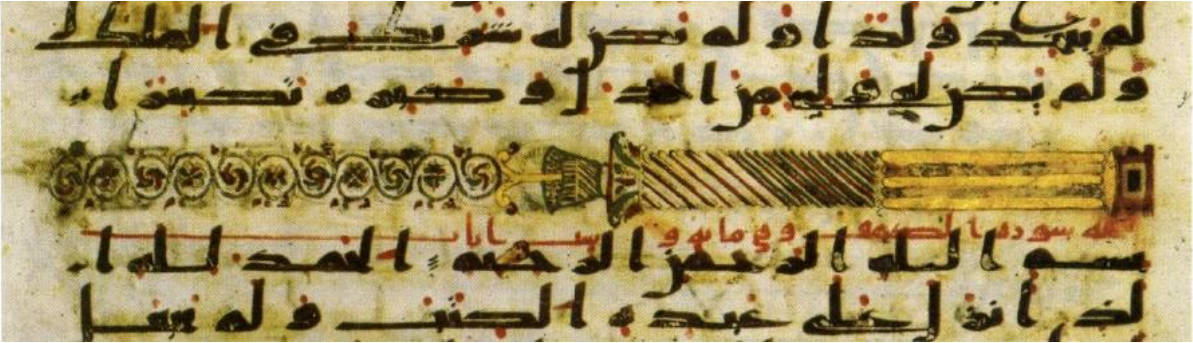 لم يتخذ ولدا ولم يكن له شريك في الملك
ولم يكن له ولي من الذل وكبره تكبيرا
سورة الكهف وهي مايه و ايات
بسم الله الرحمن الرحيم الحمد لله ا
لذي انزل على عبده الكتب ولم يجعل